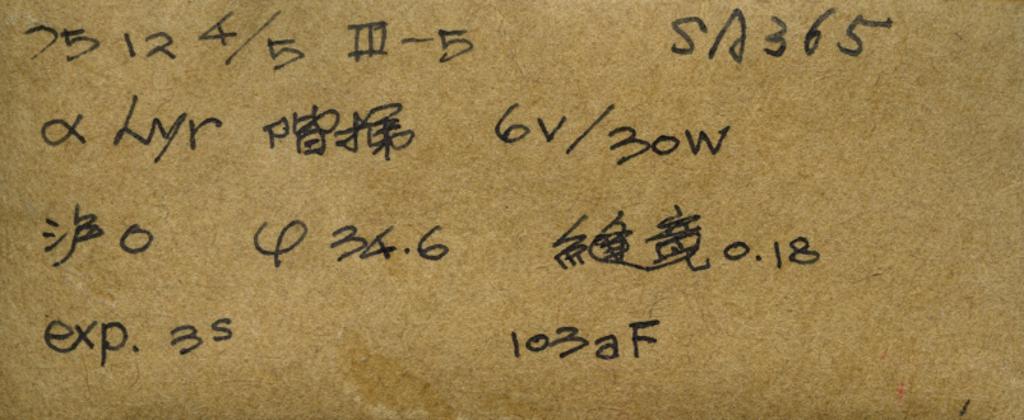 75 12 4/5 III-5 SA365
α Lyr 階掃 6V/30W
沪0 φ 34.6 縫寬 0.18
exp. 3s 103aF